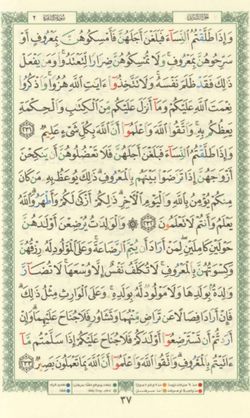 وَإِذَا طَلَّقْتُمُ النِّسَآءَ فَبَلَغْنَ أَجَلَهُنَّ فَأَمْسِكُوهُنَّ بِمَعْرُوفٍ أَوْ
سَرِّحُوهُنَّ بِمَعْرُوفٍ وَلَا تُمْسِكُوهُنَّ ضِرَارًا لِّتَعْتَدُوا۟ وَمَن يَفْعَلْ
ذَٰلِكَ فَقَدْ ظَلَمَ نَفْسَهُۥ وَلَا تَتَّخِذُوٓا۟ ءَايَٰتِ ٱللَّهِ هُزُوًا وَٱذْكُرُوا۟
نِعْمَتَ ٱللَّهِ عَلَيْكُمْ وَمَآ أَنزَلَ عَلَيْكُم مِّنَ ٱلْكِتَٰبِ وَٱلْحِكْمَةِ
يَعِظُكُم بِهِۦ وَٱتَّقُوا۟ ٱللَّهَ وَٱعْلَمُوٓا۟ أَنَّ ٱللَّهَ بِكُلِّ شَىْءٍ عَلِيمٌ ٢٣١
وَإِذَا طَلَّقْتُمُ ٱلنِّسَآءَ فَبَلَغْنَ أَجَلَهُنَّ فَلَا تَعْضُلُوهُنَّ أَن يَنكِحْنَ
أَزْوَٰجَهُنَّ إِذَا تَرَٰضَوْا۟ بَيْنَهُم بِٱلْمَعْرُوفِ ذَٰلِكَ يُوعَظُ بِهِۦ مَن كَانَ
مِنكُمْ يُؤْمِنُ بِٱللَّهِ وَٱلْيَوْمِ ٱلْءَاخِرِ ذَٰلِكُمْ أَزْكَىٰ لَكُمْ وَأَطْهَرُ وَٱللَّهُ
يَعْلَمُ وَأَنتُمْ لَا تَعْلَمُونَ ٢٣٢ وَٱلْوَٰلِدَٰتُ يُرْضِعْنَ أَوْلَٰدَهُنَّ
حَوْلَيْنِ كَامِلَيْنِ لِمَنْ أَرَادَ أَن يُتِمَّ ٱلرَّضَاعَةَ وَعَلَى ٱلْمَوْلُودِ لَهُۥ رِزْقُهُنَّ
وَكِسْوَتُهُنَّ بِٱلْمَعْرُوفِ لَا تُكَلَّفُ نَفْسٌ إِلَّا وُسْعَهَا لَا تُضَآرَّ
وَٰلِدَةٌۢ بِوَلَدِهَا وَلَا مَوْلُودٌ لَّهُۥ بِوَلَدِهِۦ وَعَلَى ٱلْوَارِثِ مِثْلُ ذَٰلِكَ
فَإِنْ أَرَادَا فِصَالًا عَن تَرَاضٍ مِّنْهُمَا وَتَشَاوُرٍ فَلَا جُنَاحَ عَلَيْهِمَا وَإِنْ
أَرَدتُّمْ أَن تَسْتَرْضِعُوٓا۟ أَوْلَٰدَكُمْ فَلَا جُنَاحَ عَلَيْكُمْ إِذَا سَلَّمْتُم مَّآ
ءَاتَيْتُم بِٱلْمَعْرُوفِ وَٱتَّقُوا۟ ٱللَّهَ وَٱعْلَمُوٓا۟ أَنَّ ٱللَّهَ بِمَا تَعْمَلُونَ بَصِيرٌ ٢٣٣
٣٧